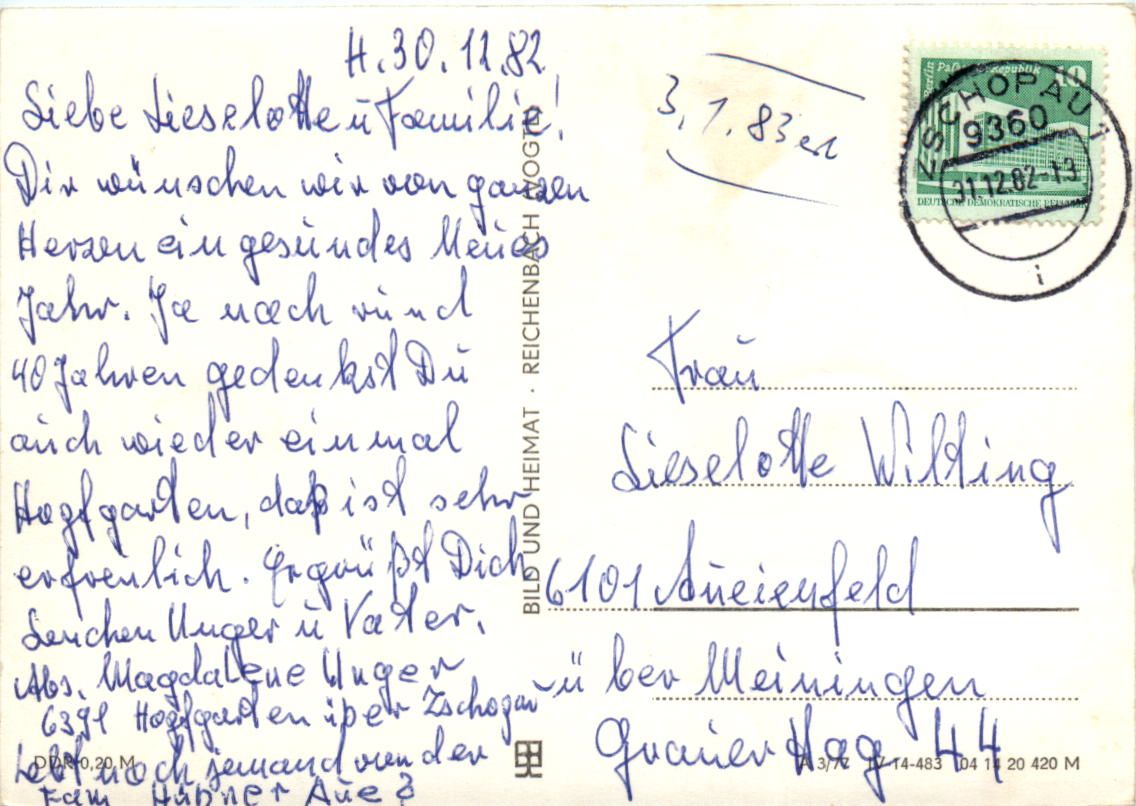 H. 30.12.82
Liebe Lieselotte u Familie!
Dir wünschen wir von ganzen
Herzen ein gesundes Neues
Jahr. Ja nach rund
40 Jahren gedenkst Du
auch wieder einmal
Hopfgarten, daß ist sehr
erfreulich. Es grüßt Dich
Lenchen Unger u Vater.
Abs. Magdalene Unger
6391 Hopfgarten über Zschopau
Lebt noch jemand von der
Fam Hübner Aue?
DDR 0,20 M
BILD UND HEIMAT · REICHENBACH (VOGTL)
3.1.83
Berlin Palast der Republik
10
DEUTSCHE DEMOKRATISCHE REPUBLIK
ZSCHOPAU 1
9360
31.12.82-13
i
Frau
Lieselotte Wilting
6101
über Meiningen
Grauer Hag 44
A 3/77 14-483 04 14 20 420 M